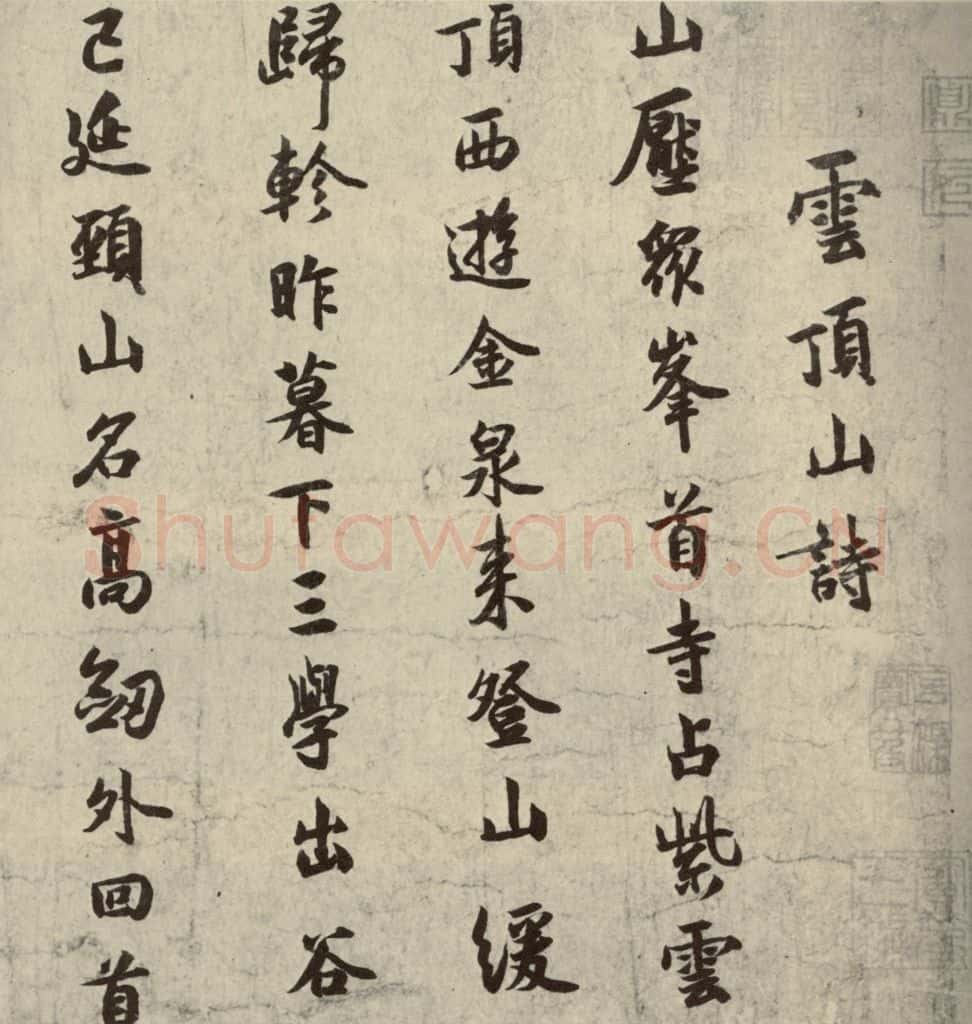 雲頂山詩
山壓眾峯首寺占紫雲
頂西遊金泉来登山緩
歸軫昨暮下三學出谷
已延頸山名高劔外回首
Shufawang.cn